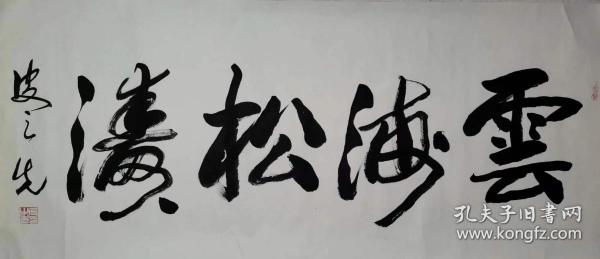 雲海松濤
皮之先
孔夫子旧書网
www.kongfz.com